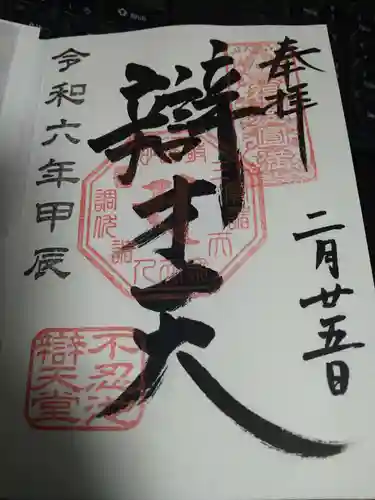 奉拝
二月廿五日
辯才天
令和六年甲辰
不忍池
辯天堂